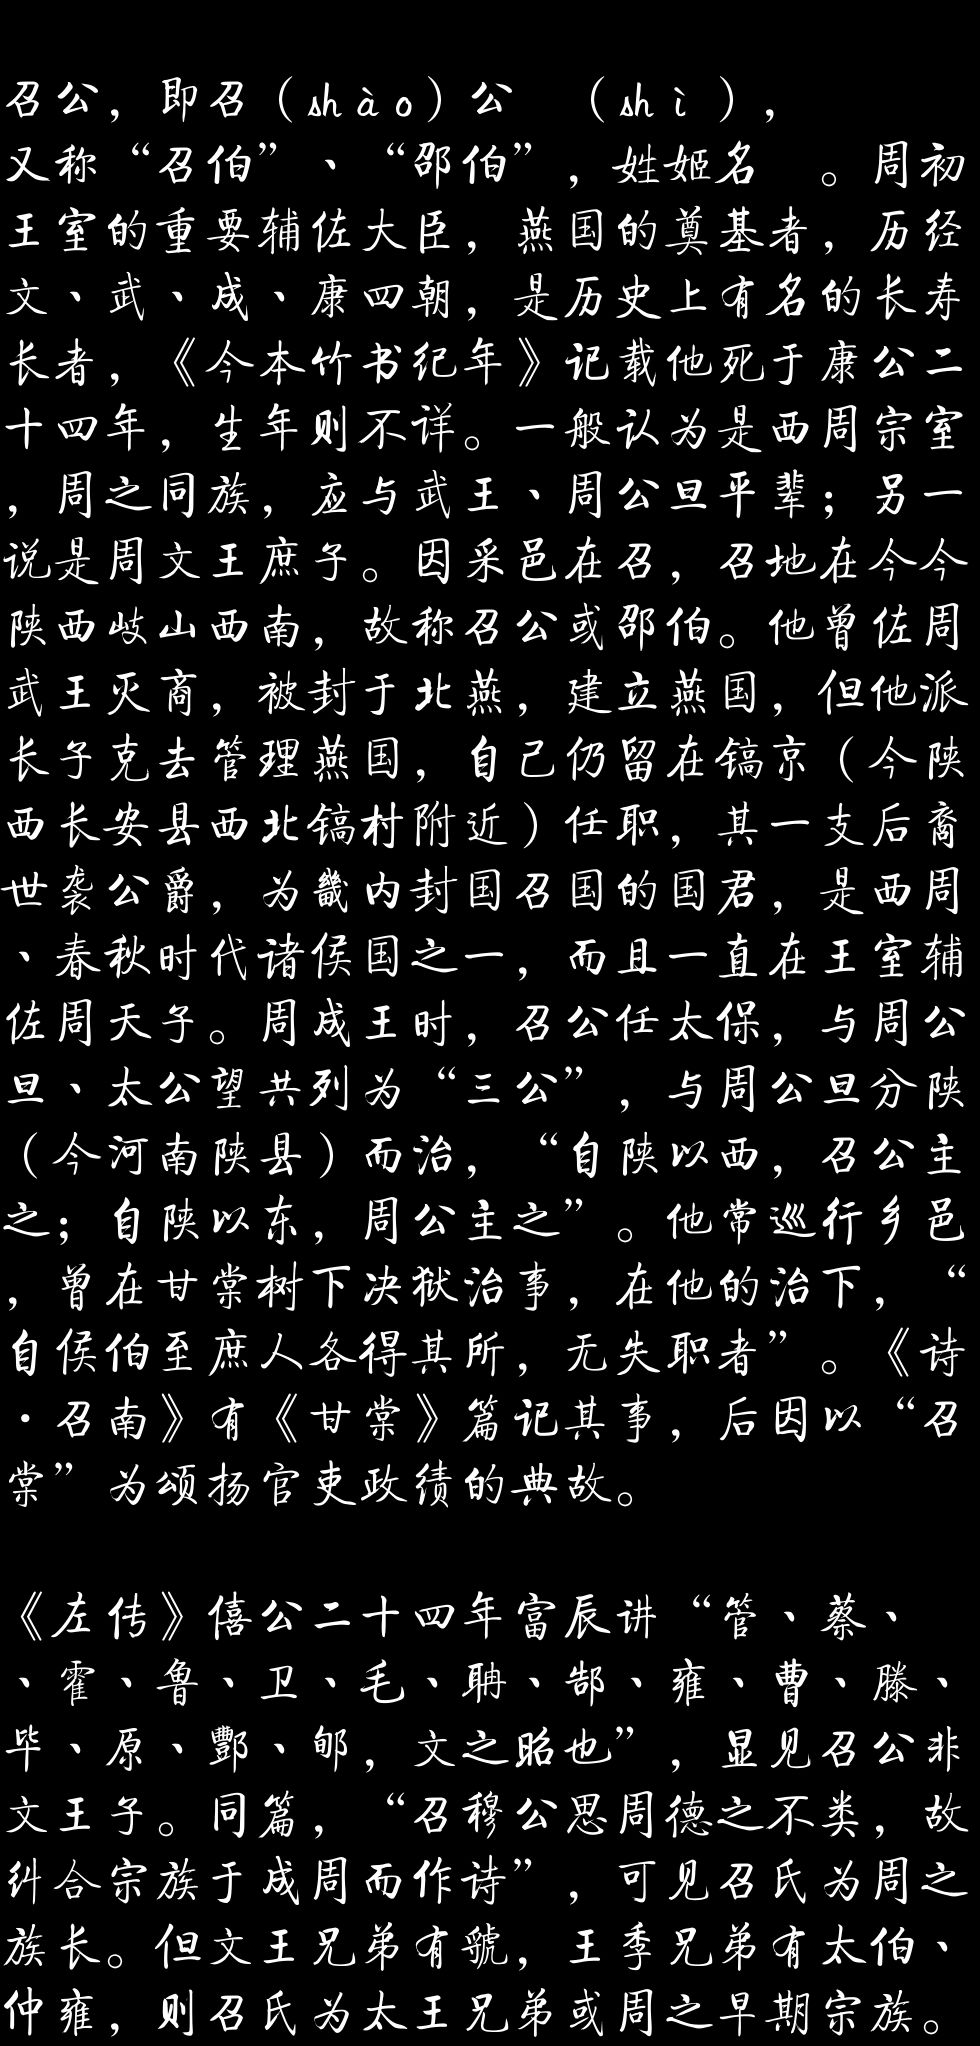 召公，即召（shào）公　（shì），
又称“召伯”、“邵伯”，姓姬名　。周初
王室的重要辅佐大臣，燕国的奠基者，历经
文、武、成、康四朝，是历史上有名的长寿
长者，《今本竹书纪年》记载他死于康公二
十四年，生年则不详。一般认为是西周宗室
，周之同族，应与武王、周公旦平辈；另一
说是周文王庶子。因采邑在召，召地在今今
陕西岐山西南，故称召公或邵伯。他曾佐周
武王灭商，被封于北燕，建立燕国，但他派
长子克去管理燕国，自己仍留在镐京（今陕
西长安县西北镐村附近）任职，其一支后裔
世袭公爵，为畿内封国召国的国君，是西周
、春秋时代诸侯国之一，而且一直在王室辅
佐周天子。周成王时，召公任太保，与周公
旦、太公望共列为“三公”，与周公旦分陕
（今河南陕县）而治，“自陕以西，召公主
之；自陕以东，周公主之”。他常巡行乡邑
，曾在甘棠树下决狱治事，在他的治下，“
自侯伯至庶人各得其所，无失职者”。《诗
·召南》有《甘棠》篇记其事，后因以“召
棠”为颂扬官吏政绩的典故。
《左传》僖公二十四年富辰讲“管、蔡、
、霍、鲁、卫、毛、聃、郜、雍、曹、滕、
毕、原、酆、郇，文之昭也”，显见召公非
文王子。同篇，“召穆公思周德之不类，故
纠合宗族于成周而作诗”，可见召氏为周之
族长。但文王兄弟有虢，王季兄弟有太伯、
仲雍，则召氏为太王兄弟或周之早期宗族。